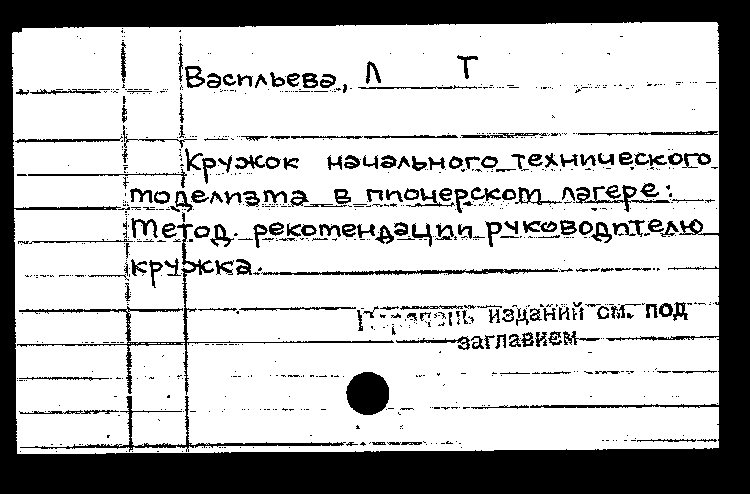 Васильева, Л Т
Кружок начального технического
моделизма в пионерском лагере:
Метод. рекомендации руководителю
кружка.
Перечень изданий см. под
заглавием